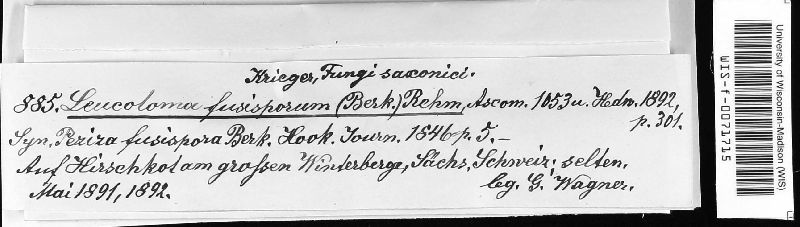 Krieger, Fungi saxonici.
885. Leucoloma fusisporum (Berk.) Rehm, Ascom. 1053 u. Hedw. 1892, p. 301.
Syn. Peziza fusispora Berk. Hook. Journ. 1846 p. 5. —
Auf Hirschkot am grossen Winterberge, Sächs. Schweiz; selten.
Mai 1891, 1892. leg. G. Wagner.
University of Wisconsin-Madison (WIS)
WIS-f-0071715